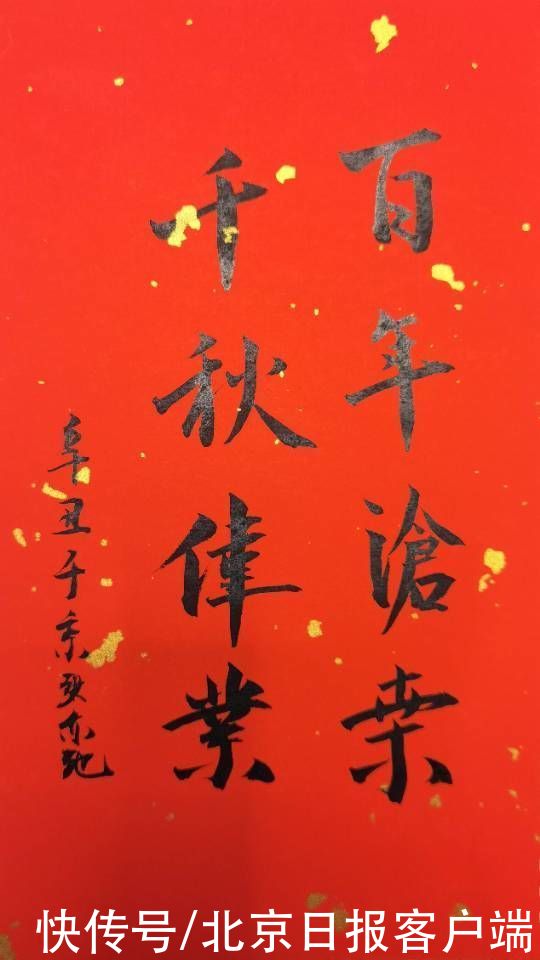 百年滄桒
千秋偉業
辛丑于京
快传号/北京日报客户端